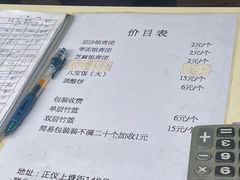 价目表
豆沙馅青团 2元/个
枣泥馅青团 2元/个
芝麻馅青团 2元/个
八宝饭（大） 15元/个
酒酿饼
包装收费
单层竹篮 6元/个
双层竹篮 15元/个
简易包装装不满二十个加收1元
地址：正仪上塘街140号